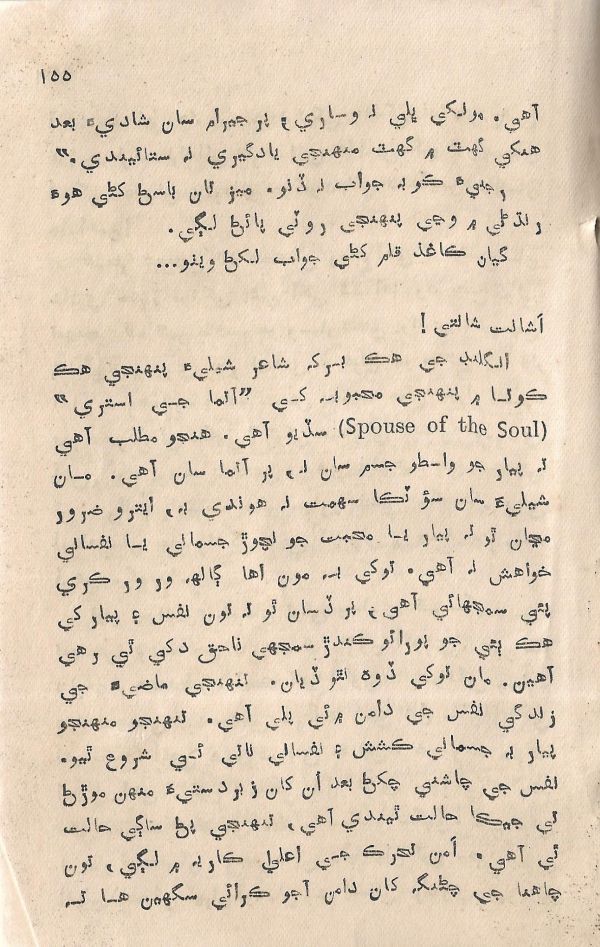 ۱۵۵
آهي. مولکي ڀلي نہ وساري، پر جيرام سان شاديءَ بعد
هنکي گهٽ ۾ گهٽ منهنجي يادگيري نہ ستائيندي.“
رجنيءَ ڪو بہ جواب نہ ڏنو. ميز تان باسڻ کڻي هوءَ
رنڌڻي ۾ وڃي پنهنجي روٽي پائڻ لڳي.
گيان ڪاغذ قلم کڻي جواب لکڻ ويٺو...
آشالت شالتي!
انگلنڊ جي هڪ بزرگ شاعر شيليءَ پنهنجي هڪ
ڪوتا ۾ پنهنجي محبوبہ کي ”آتما جي استري“
(Spouse of the Soul) سڏيو آهي. هنجو مطلب آهي
تہ پيار جو واسطو جسم سان نہ، پر آتما سان آهي. مان
شيليءَ سان سؤ ٽڪا سهمت نہ هوندي بہ، ايترو ضرور
مڃان ٿو تہ پيار يا محبت جو نچوڙ جسماني يا نفساني
خواهش نہ آهي. توکي بہ مون اها ڳالهہ ور ور ڪري
پئي سمجهائي آهي، پر ڏسان ٿو تہ تون نفس ۽ پيار کي
هڪ ٻئي جو پورائو ڪندڙ سمجهي ناحق دکي ٿي رهي
آهين. مان توکي ڏوهہ نٿو ڏيان. تنهنجي ماضيءَ جي
زندگي نفس جي دامن ۾ ئي پلي آهي. تنهنجو منهنجو
پيار بہ جسماني ڪشش ۽ نفساني ناتي ئي شروع ٿيو.
نفس جي چاشني چکڻ بعد اُن کان زبردستيءَ منهن موڙڻ
تي جيڪا حالت ٿيندي آهي، تنهنجي پڻ ساڳي حالت
ٿي آهي. اُمن تحرڪ جي اعليٰ ڪاريہ ۾ لڳي، تون
چاهنا جي چڻنگہ کان دامن آجو ڪرائي سگهين ها تہ